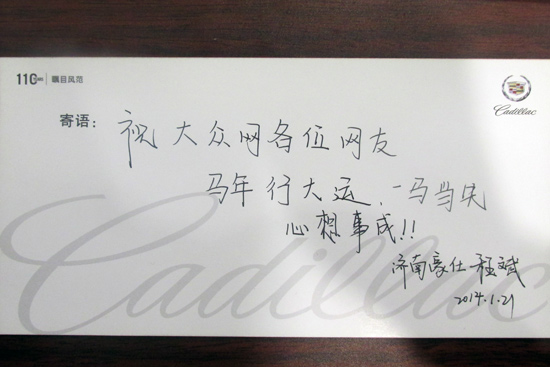 110 瞩目风范
Cadillac
寄语：
祝大众网各位网友
马年行大运，一马当先
心想事成!!
济南豪仕 程斌
2014.1.21
Cadillac